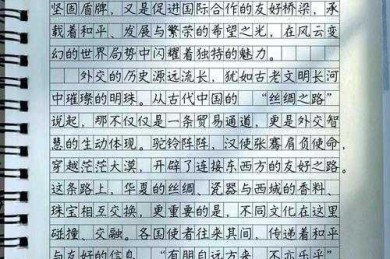 坚固盾牌，又是促进国际合作的友好桥梁，承
载着和平、发展与繁荣的希望之光，在风云变
幻的世界局势中闪耀着独特的魅力。
外交的历史源远流长，犹如古老文明长河
中璀璨的明珠。从古代中国的 “丝绸之路”
说起，那不仅仅是一条贸易通道，更是外交智
慧的生动体现。驼铃阵阵，汉使张骞肩负使命，
穿越茫茫大漠，开辟了连接东西方的友好之路。
这条路上，华夏的丝绸、瓷器与西域的香料、
珠宝相互交换，更重要的是，不同文化在这里
碰撞、交融。各国使者往来其间，传递着和平
与友好的信息，“有朋自远方来，不亦乐乎”